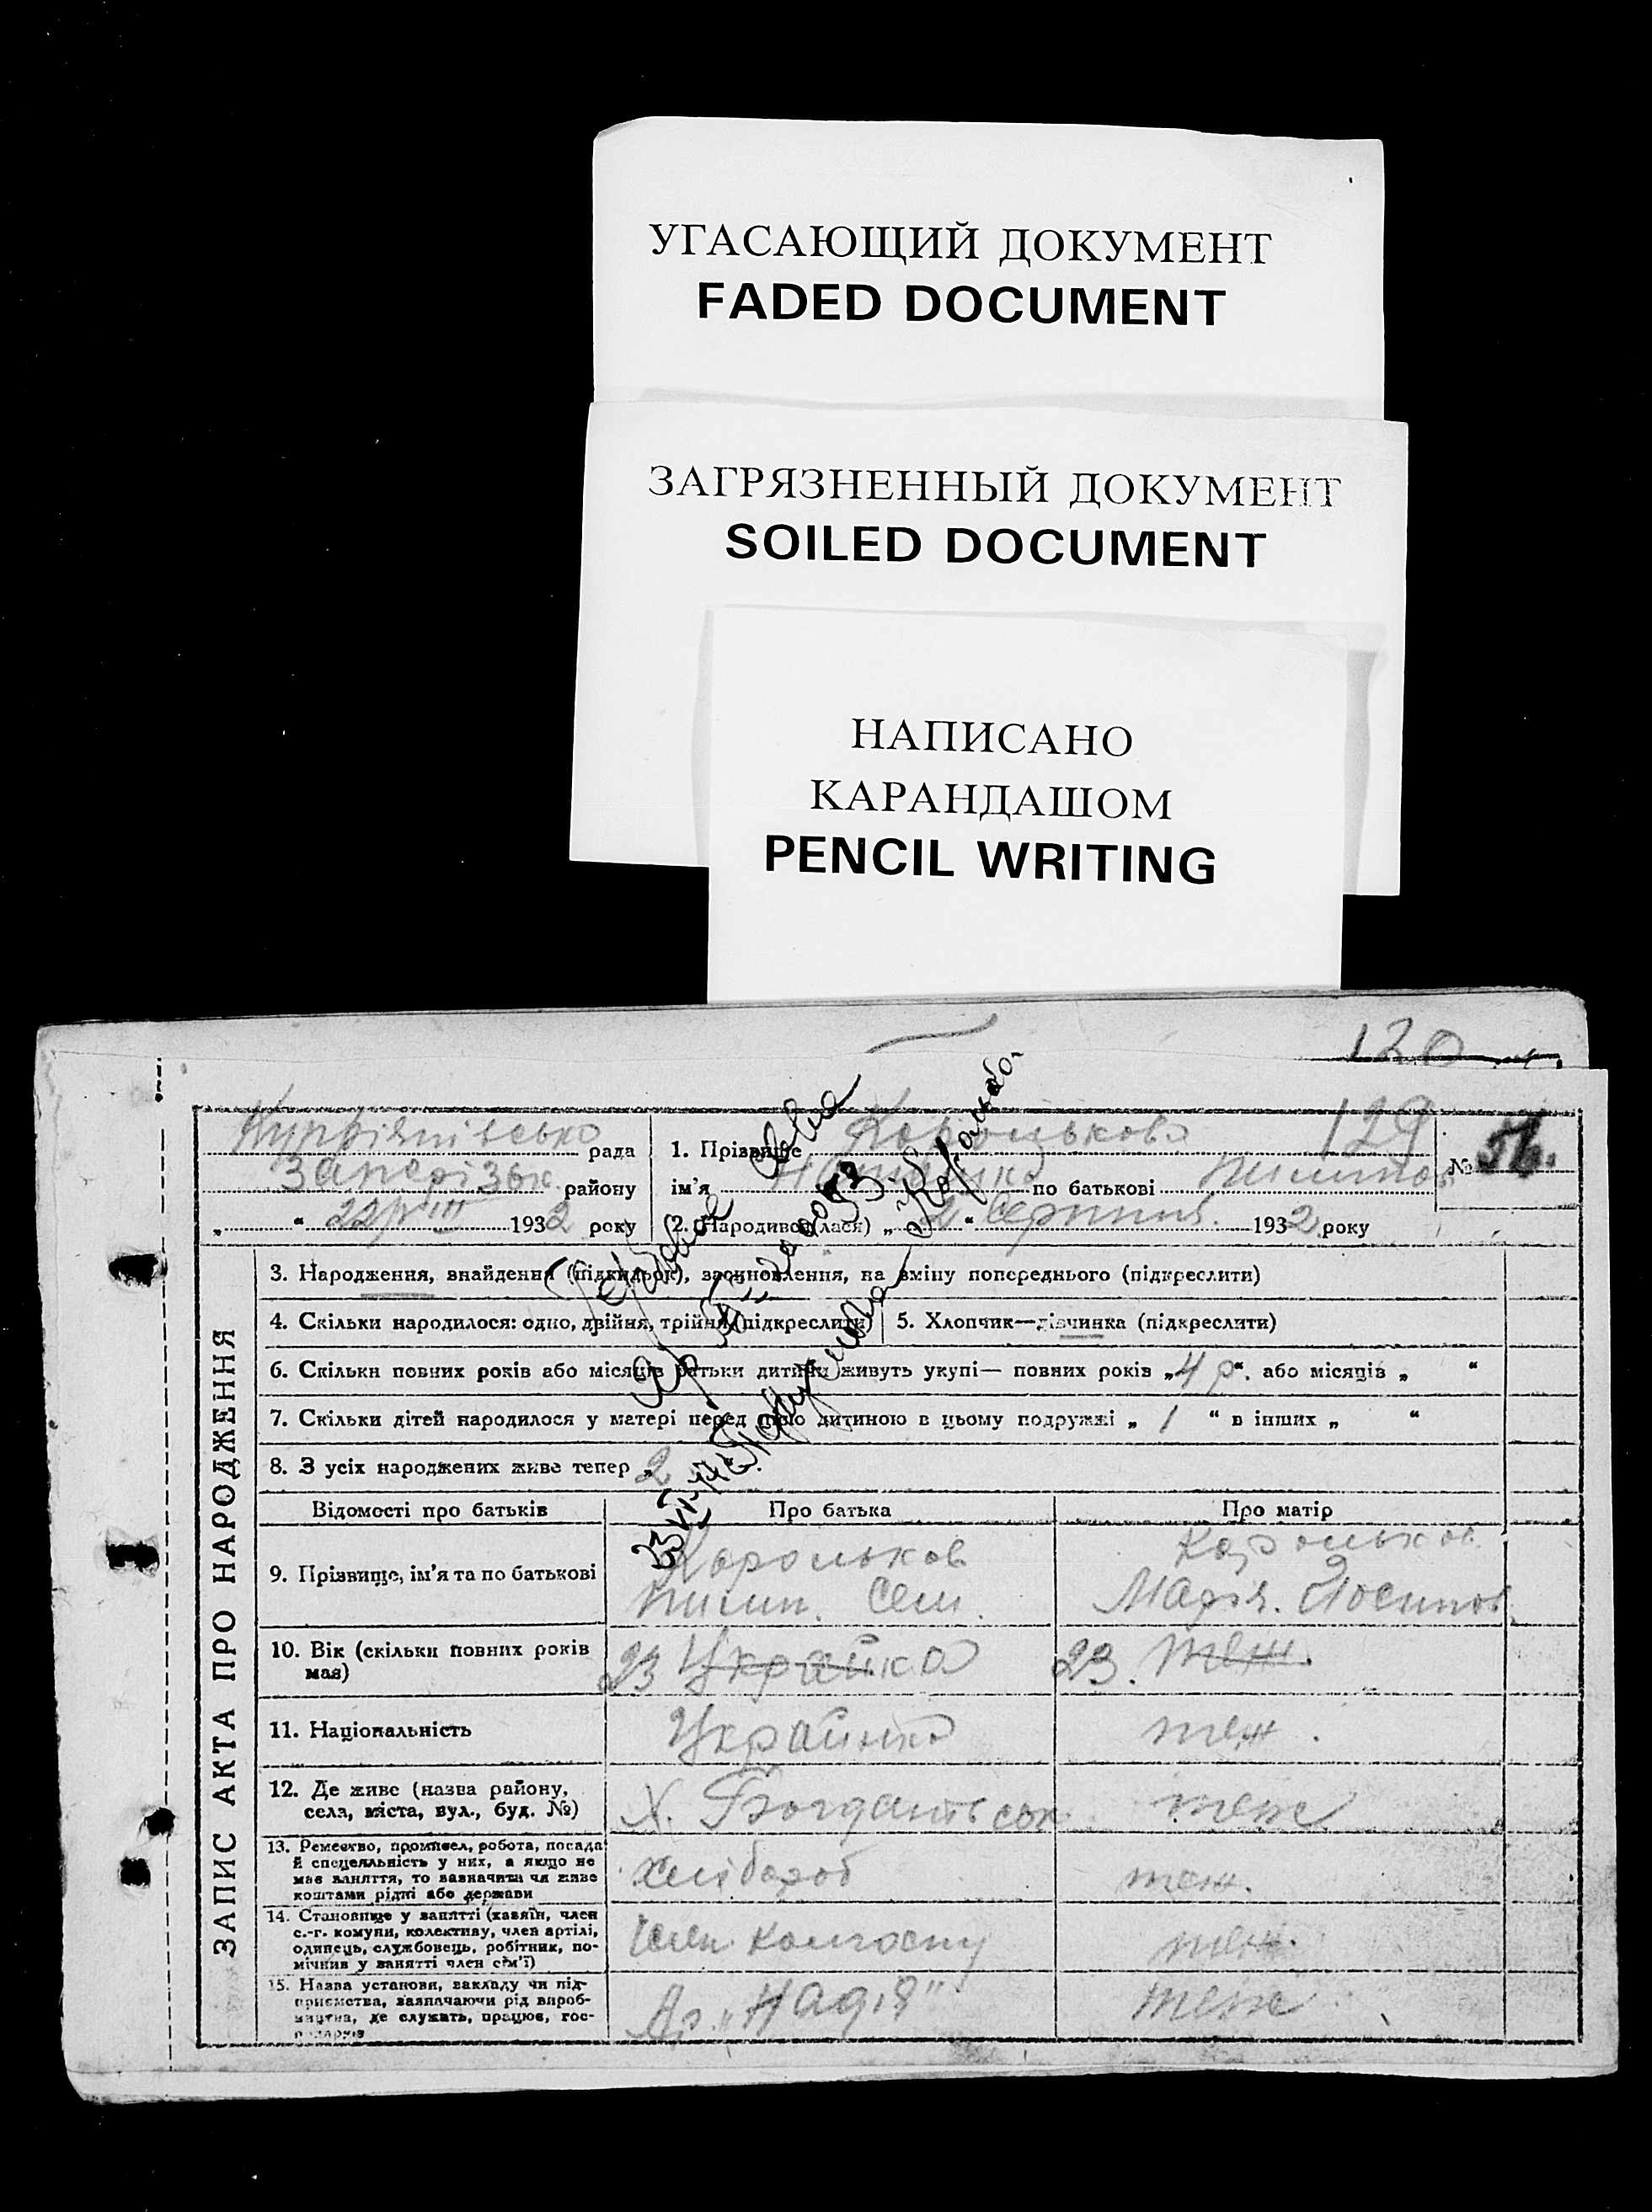 УГАСАЮЩИЙ ДОКУМЕНТ
FADED DOCUMENT
ЗАГРЯЗНЕННЫЙ ДОКУМЕНТ
SOILED DOCUMENT
НАПИСАНО
КАРАНДАШОМ
PENCIL WRITING
120
129
рада
1. Прізвище Королькова
№
Запорізьк. району
ім'я по батькові Пилипов
„ “ 22/VIII 1932 року
2. Народився(лася) „ 2 “ Серпня 1932 року
ЗАПИС АКТА ПРО НАРОДЖЕННЯ
3. Народження, знайдення (підкидьок), всиновлення, на зміну попереднього (підкреслити)
4. Скільки народилося: одно, двійня, трійня (підкреслити)
5. Хлопчик—дівчинка (підкреслити)
6. Скільки повних років або місяців батьки дитини живуть укупі— повних років „ 4 р “. або місяців „ “
7. Скільки дітей народилося у матері перед цією дитиною в цьому подружжі „ 1 “ в інших „ “
8. З усіх народжених живе тепер „ 2
Відомості про батьків
Про батька
Про матір
9. Прізвище, ім'я та по батькові
Корольков
Пилип. Сем.
Корольков
Марія. Йосипов.
10. Вік (скільки повних років має)
23 Українка
23. теж.
11. Національність
Українка
теж.
12. Де живе (назва району, села, міста, вул., буд. №)
Х.
теж
13. Ремество, промисел, робота, посада й спеціяльність у них, а якщо не має заняття, то зазначити чи живе коштами рідні або держави
Хлібороб
теж.
14. Становище у занятті (хазяїн, член с.-г. комуни, колективу, член артілі, одинець, службовець, робітник, помічник у занятті член сім'ї)
Член колгоспу
теж.
15. Назва установи, закладу чи підприємства, зазначаючи рід виробництва, де служить, працює, господарює
Ар. „Надія“
теж